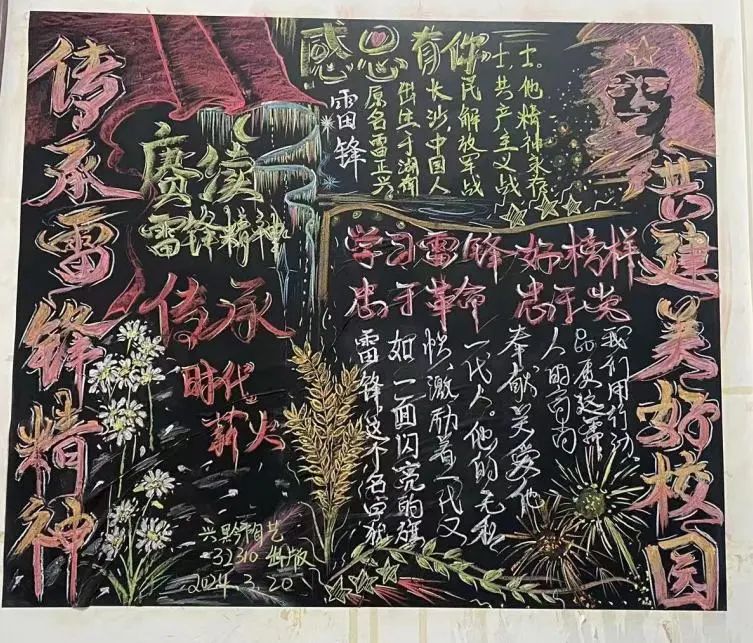 传承雷锋精神
赓续
雷锋精神
传承
时代
薪火
32310
2024.3.20
感恩有你
雷锋
原名雷正兴
出生于湖南
长沙,中国人
民解放军战
士,共产主义战
士。他精神永存
学习雷锋好榜样
忠于革命忠于党
雷锋这个名字就
如一面闪亮的旗
帜,激励着一代又
一代人。他的无私
奉献关爱他
人的高尚
品质这需
我们用行动
共建美好校园